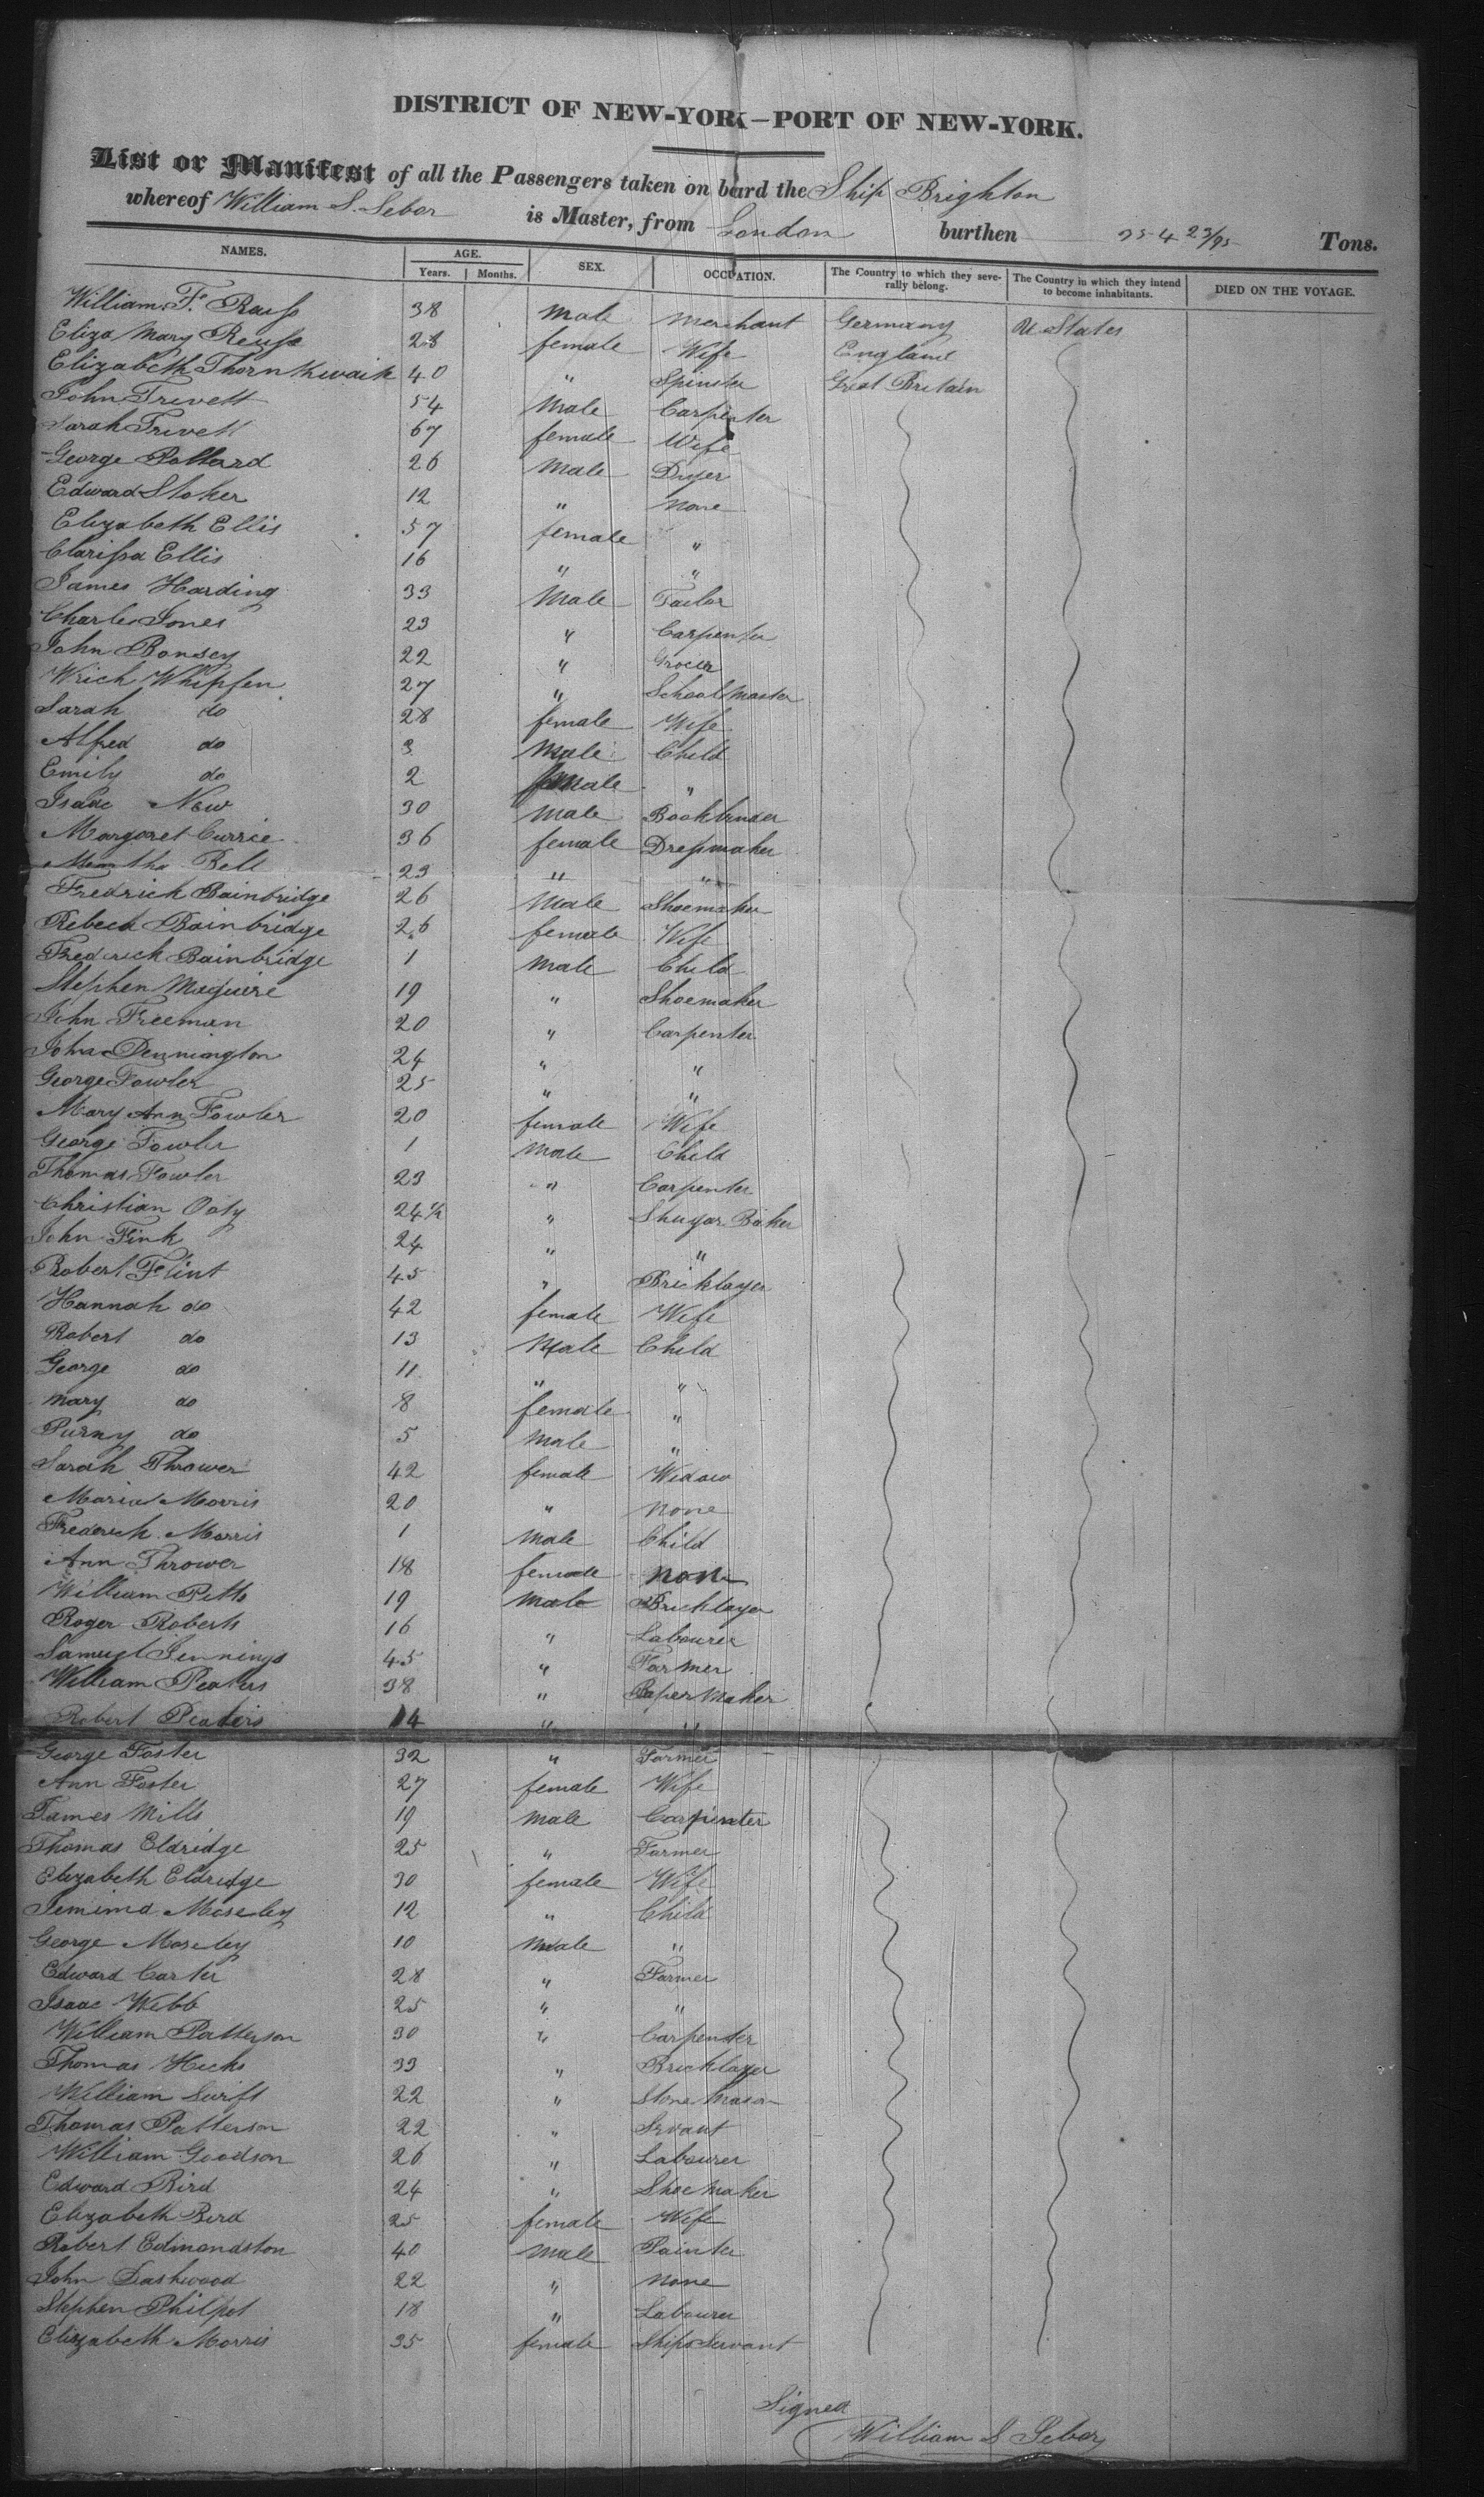 DISTRICT OF NEW-YORK—PORT OF NEW-YORK.
List or Manifest of all the Passengers taken on board the Ship Brighton
whereof William S. Sebor is Master, from London burthen 354 23/95 Tons.
NAMES. AGE. Years. Months. SEX. OCCUPATION. The Country to which they severally belong. The Country in which they intend to become inhabitants. DIED ON THE VOYAGE.
William F. Reuss 38 Male Merchant Germany U States
Eliza Mary Reuss 28 female Wife England
Elizabeth Thornthwaite 40 " Spinster Great Britain
John Trevett 54 Male Carpenter
Sarah Trevett 67 female Wife
George Pollard 26 Male Dyer
Edward Stoker 12 " None
Elizabeth Ellis 57 female "
Clarissa Ellis 16 " "
James Harding 33 Male Tailor
Charles Jones 23 " Carpenter
John Bonsey 22 " Grocer
Whipfen 27 " School Master
Sarah do 28 female Wife
Alfred do 3 Male Child
Emily do 2 female "
Isaac New 30 Male Bookbinder
Margaret Currie 36 female Dressmaker
Martha Bell 23 " "
Fredrick Bainbridge 26 Male Shoemaker
Rebeca Bainbridge 26 female Wife
Fredrick Bainbridge 1 Male Child
Stephen Maguire 19 " Shoemaker
John Freeman 20 " Carpenter
John Dennington 24 " "
George Fowler 25 " "
Mary Ann Fowler 20 female Wife
George Fowler 1 Male Child
Thomas Fowler 23 " Carpenter
Christian 24 1/2 " Shugar Baker
John Fink 24 " "
Robert Flint 45 " Bricklayer
Hannah do 42 female Wife
Robert do 13 Male Child
George do 11 " "
Mary do 8 female "
Purny do 5 Male "
Sarah Thrower 42 female Widow
Maria Morris 20 " None
Frederick Morris 1 Male Child
Ann Thrower 18 female None
William Pitts 19 Male Bricklayer
Roger Roberts 16 " Labourer
Samuel Jennings 45 " Farmer
William Peaters 38 " Paper Maker
Robert Peaters 14 " "
George Foster 32 " Farmer
Ann Foster 27 female Wife
James Mills 19 Male Carpinter
Thomas Eldridge 25 " Farmer
Elizabeth Eldridge 30 female Wife
Jemima Moseley 12 " Child
George Moseley 10 Male "
Edward Carter 28 " Farmer
Isaac Webb 25 " "
William Patterson 30 " Carpenter
Thomas Hicks 33 " Bricklayer
William Swift 22 " Stone Mason
Thomas Patterson 22 " Srvant
William Goodson 26 " Labourer
Edward Bird 24 " Shoe Maker
Elizabeth Bird 25 female Wife
Robert Edmondston 40 Male Painter
John Dashwood 22 " None
Stephen Philpot 18 " Labourer
Elizabeth Morris 35 female Ships Servant
Signed
William S Sebor